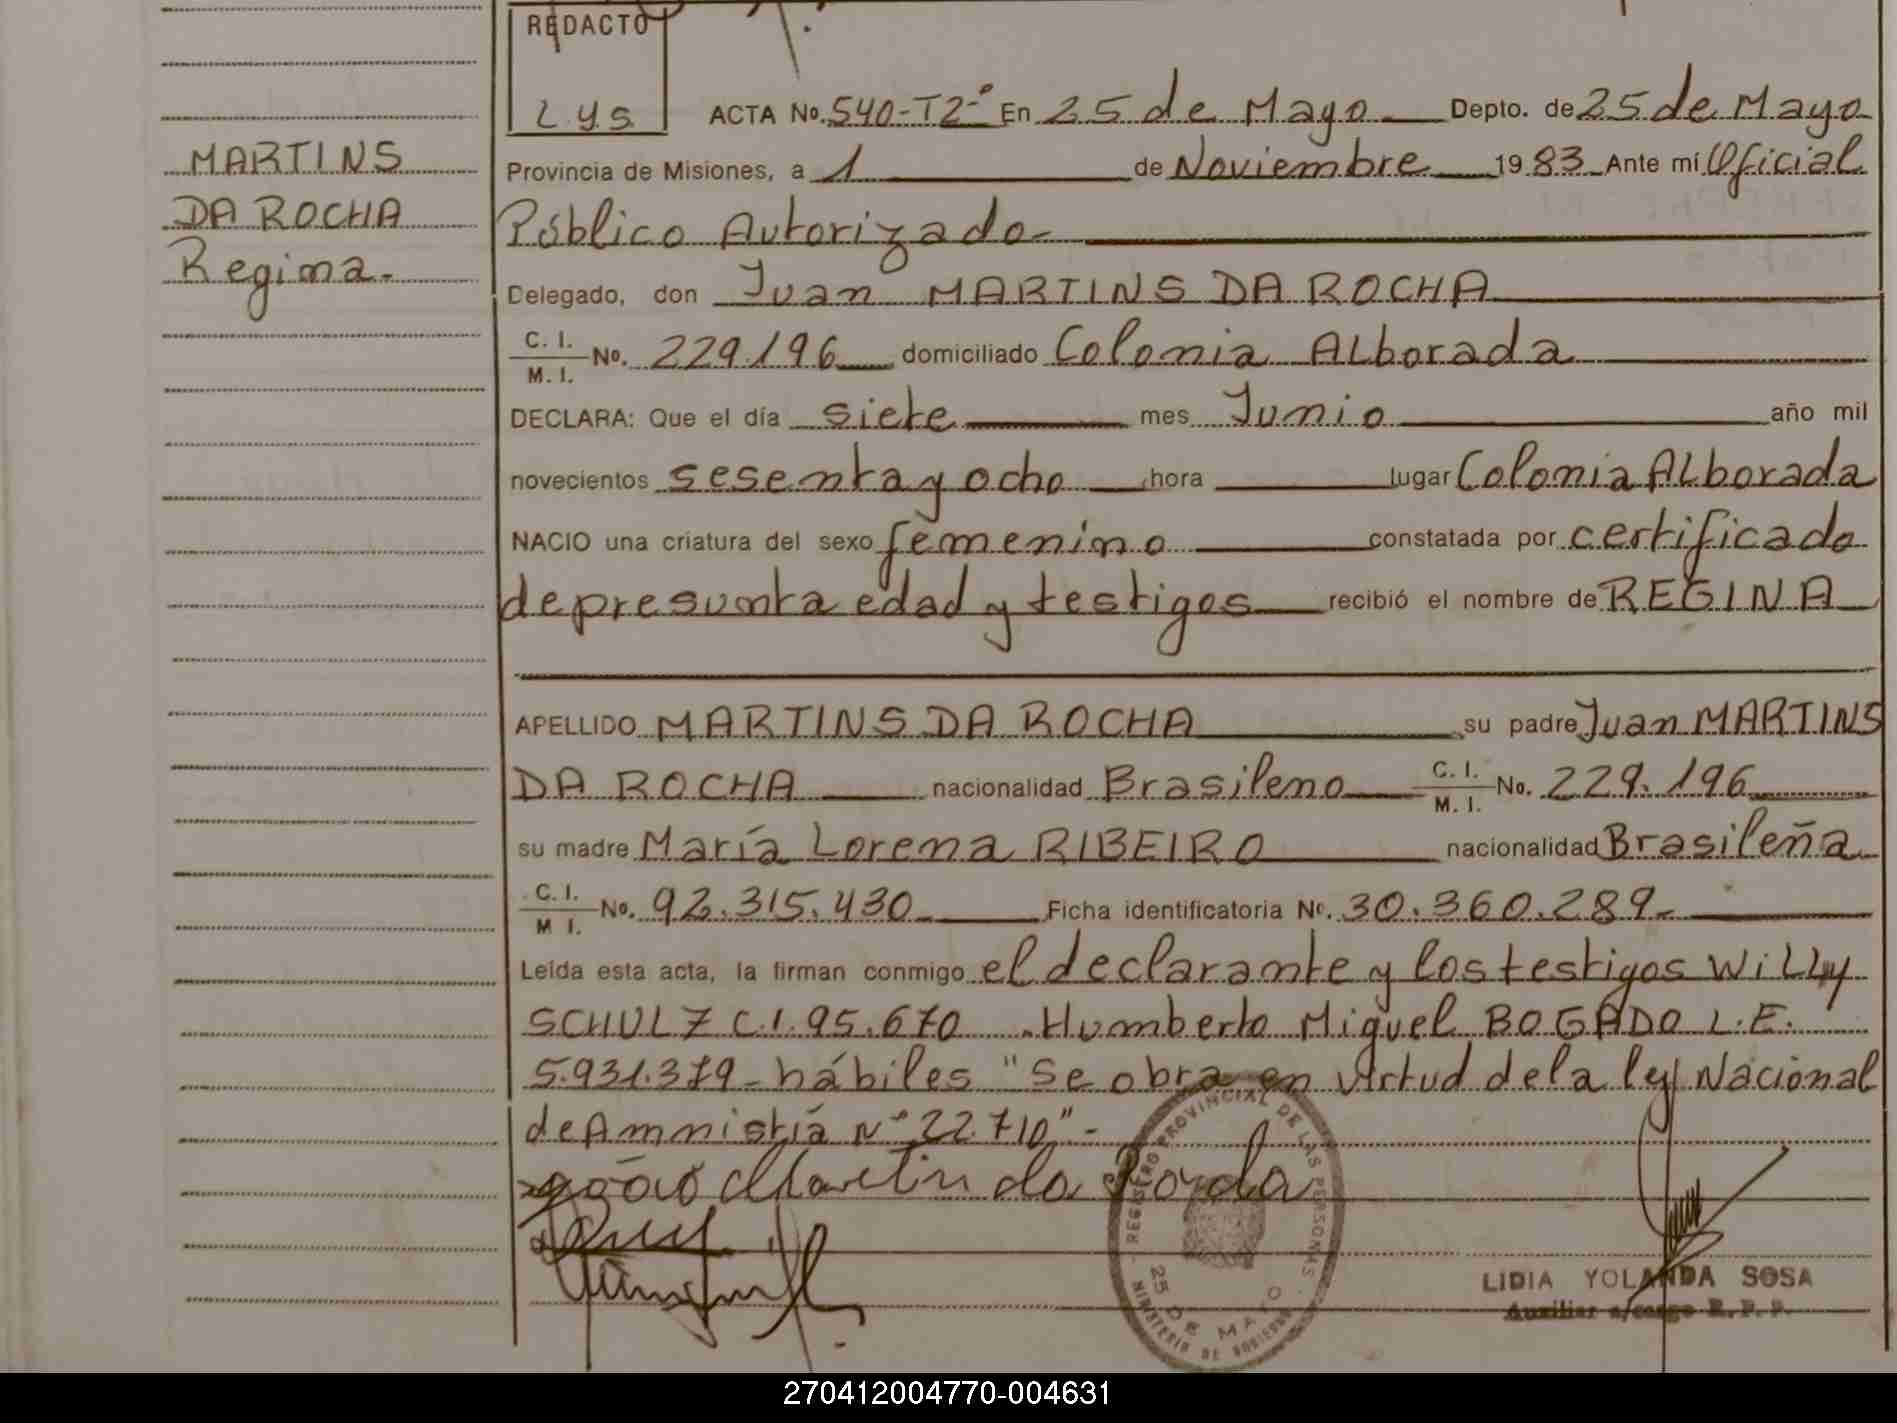 REDACTO
L.y.s.
ACTA No. 540-T2-° En 25 de Mayo Depto. de 25 de Mayo
MARTINS
DA ROCHA
Regina.-
Provincia de Misiones, a 1 de Noviembre 1983 Ante mí Oficial
Público Autorizado-
Delegado, don Juan MARTINS DA ROCHA
C. I.
M. I. No. 229.196 domiciliado Colonia ALborada
DECLARA: Que el día siete mes Junio año mil
novecientos sesenta y ocho hora lugar Colonia ALborada
NACIO una criatura del sexo femenino constatada por certificado
de presunta edad y testigos recibió el nombre de REGINA
APELLIDO MARTINS DA ROCHA su padre Juan MARTINS
DA ROCHA nacionalidad Brasileno C. I.
M. I. No. 229.196
su madre María Lorena RIBEIRO nacionalidad Brasileña
C. I.
M I. No. 92.315.430 Ficha identificatoria No. 30.360.289-
Leída esta acta, la firman conmigo el declarante y los testigos WiLLy
SCHULZ C.I. 95.670 . Humberto Miguel BOGADO L.E.
5.931.379- hábiles "Se obra en virtud de la ley Nacional
de Amnistía N° 22.710"-
REGISTRO PROVINCIAL DE LAS PERSONAS
25 DE MAYO
MINISTERIO DE GOBIERNO
LIDIA YOLANDA SOSA
Auxiliar a/cargo R.P.P.
270412004770-004631